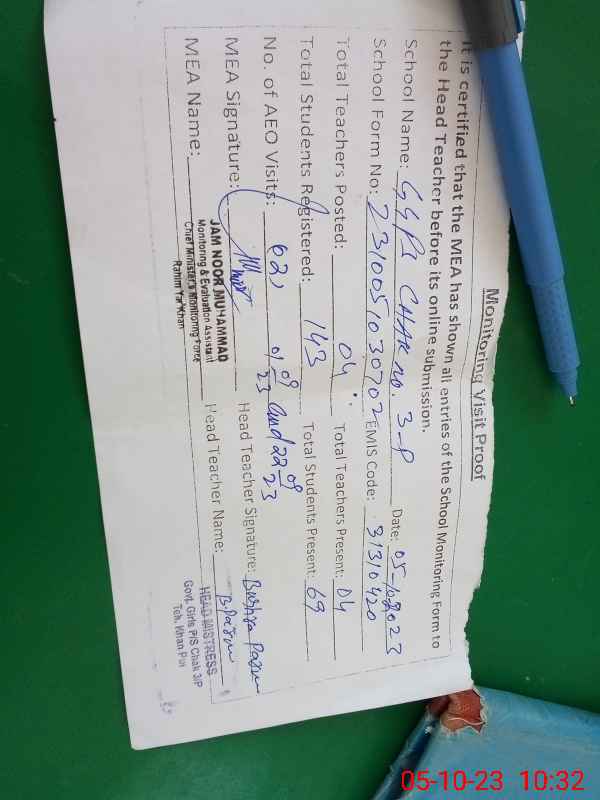 Monitoring Visit Proof
It is certified that the MEA has shown all entries of the School Monitoring Form to
the Head Teacher before its online submission.
School Name: GGPS CHAK no. 3-P Date: 05-
School Form No: 2310051030702 EMIS Code: 31310420
Total Teachers Posted: 04 Total Teachers Present: 04
Total Students Registered: 143 Total Students Present: 69
No. of AEO Visits: 02, 01-09/23 and 22-09/23
MEA Signature: Head Teacher Signature: Bushra
MEA Name: Head Teacher Name:
JAM NOOR MUHAMMAD
Monitoring & Evaluation Assistant
Chief Minister's Monitoring Force
Rahim Yar Khan
HEAD MISTRESS
Govt. Girls P/S Chak 3/P
Teh. Khan Pur
05-10-23 10:32